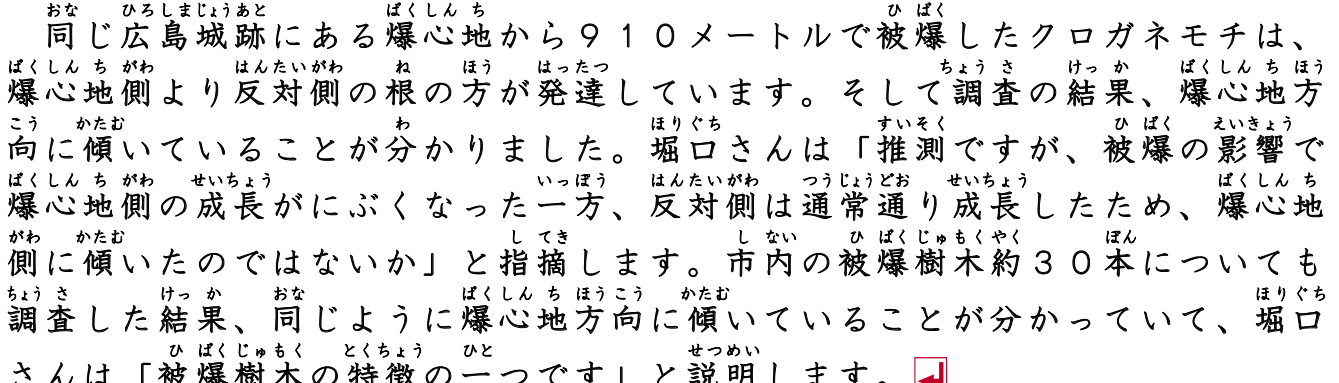 同じ広島城跡にある爆心地から９１０メートルで被爆したクロガネモチは、
爆心地側より反対側の根の方が発達しています。そして調査の結果、爆心地方
向に傾いていることが分かりました。堀口さんは「推測ですが、被爆の影響で
爆心地側の成長がにぶくなった一方、反対側は通常通り成長したため、爆心地
側に傾いたのではないか」と指摘します。市内の被爆樹木約３０本についても
調査した結果、同じように爆心地方向に傾いていることが分かっていて、堀口
さんは「被爆樹木の特徴の一つです」と説明します。